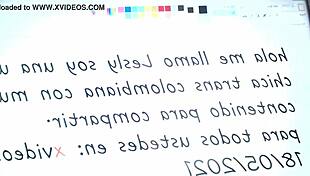 loaded to WWW.XVIDEOS.COM
hola me llamo Lesly soy una
chica trans colombiana con
contenido para compartir.
para todos ustedes en: xvideos
18/05/2021